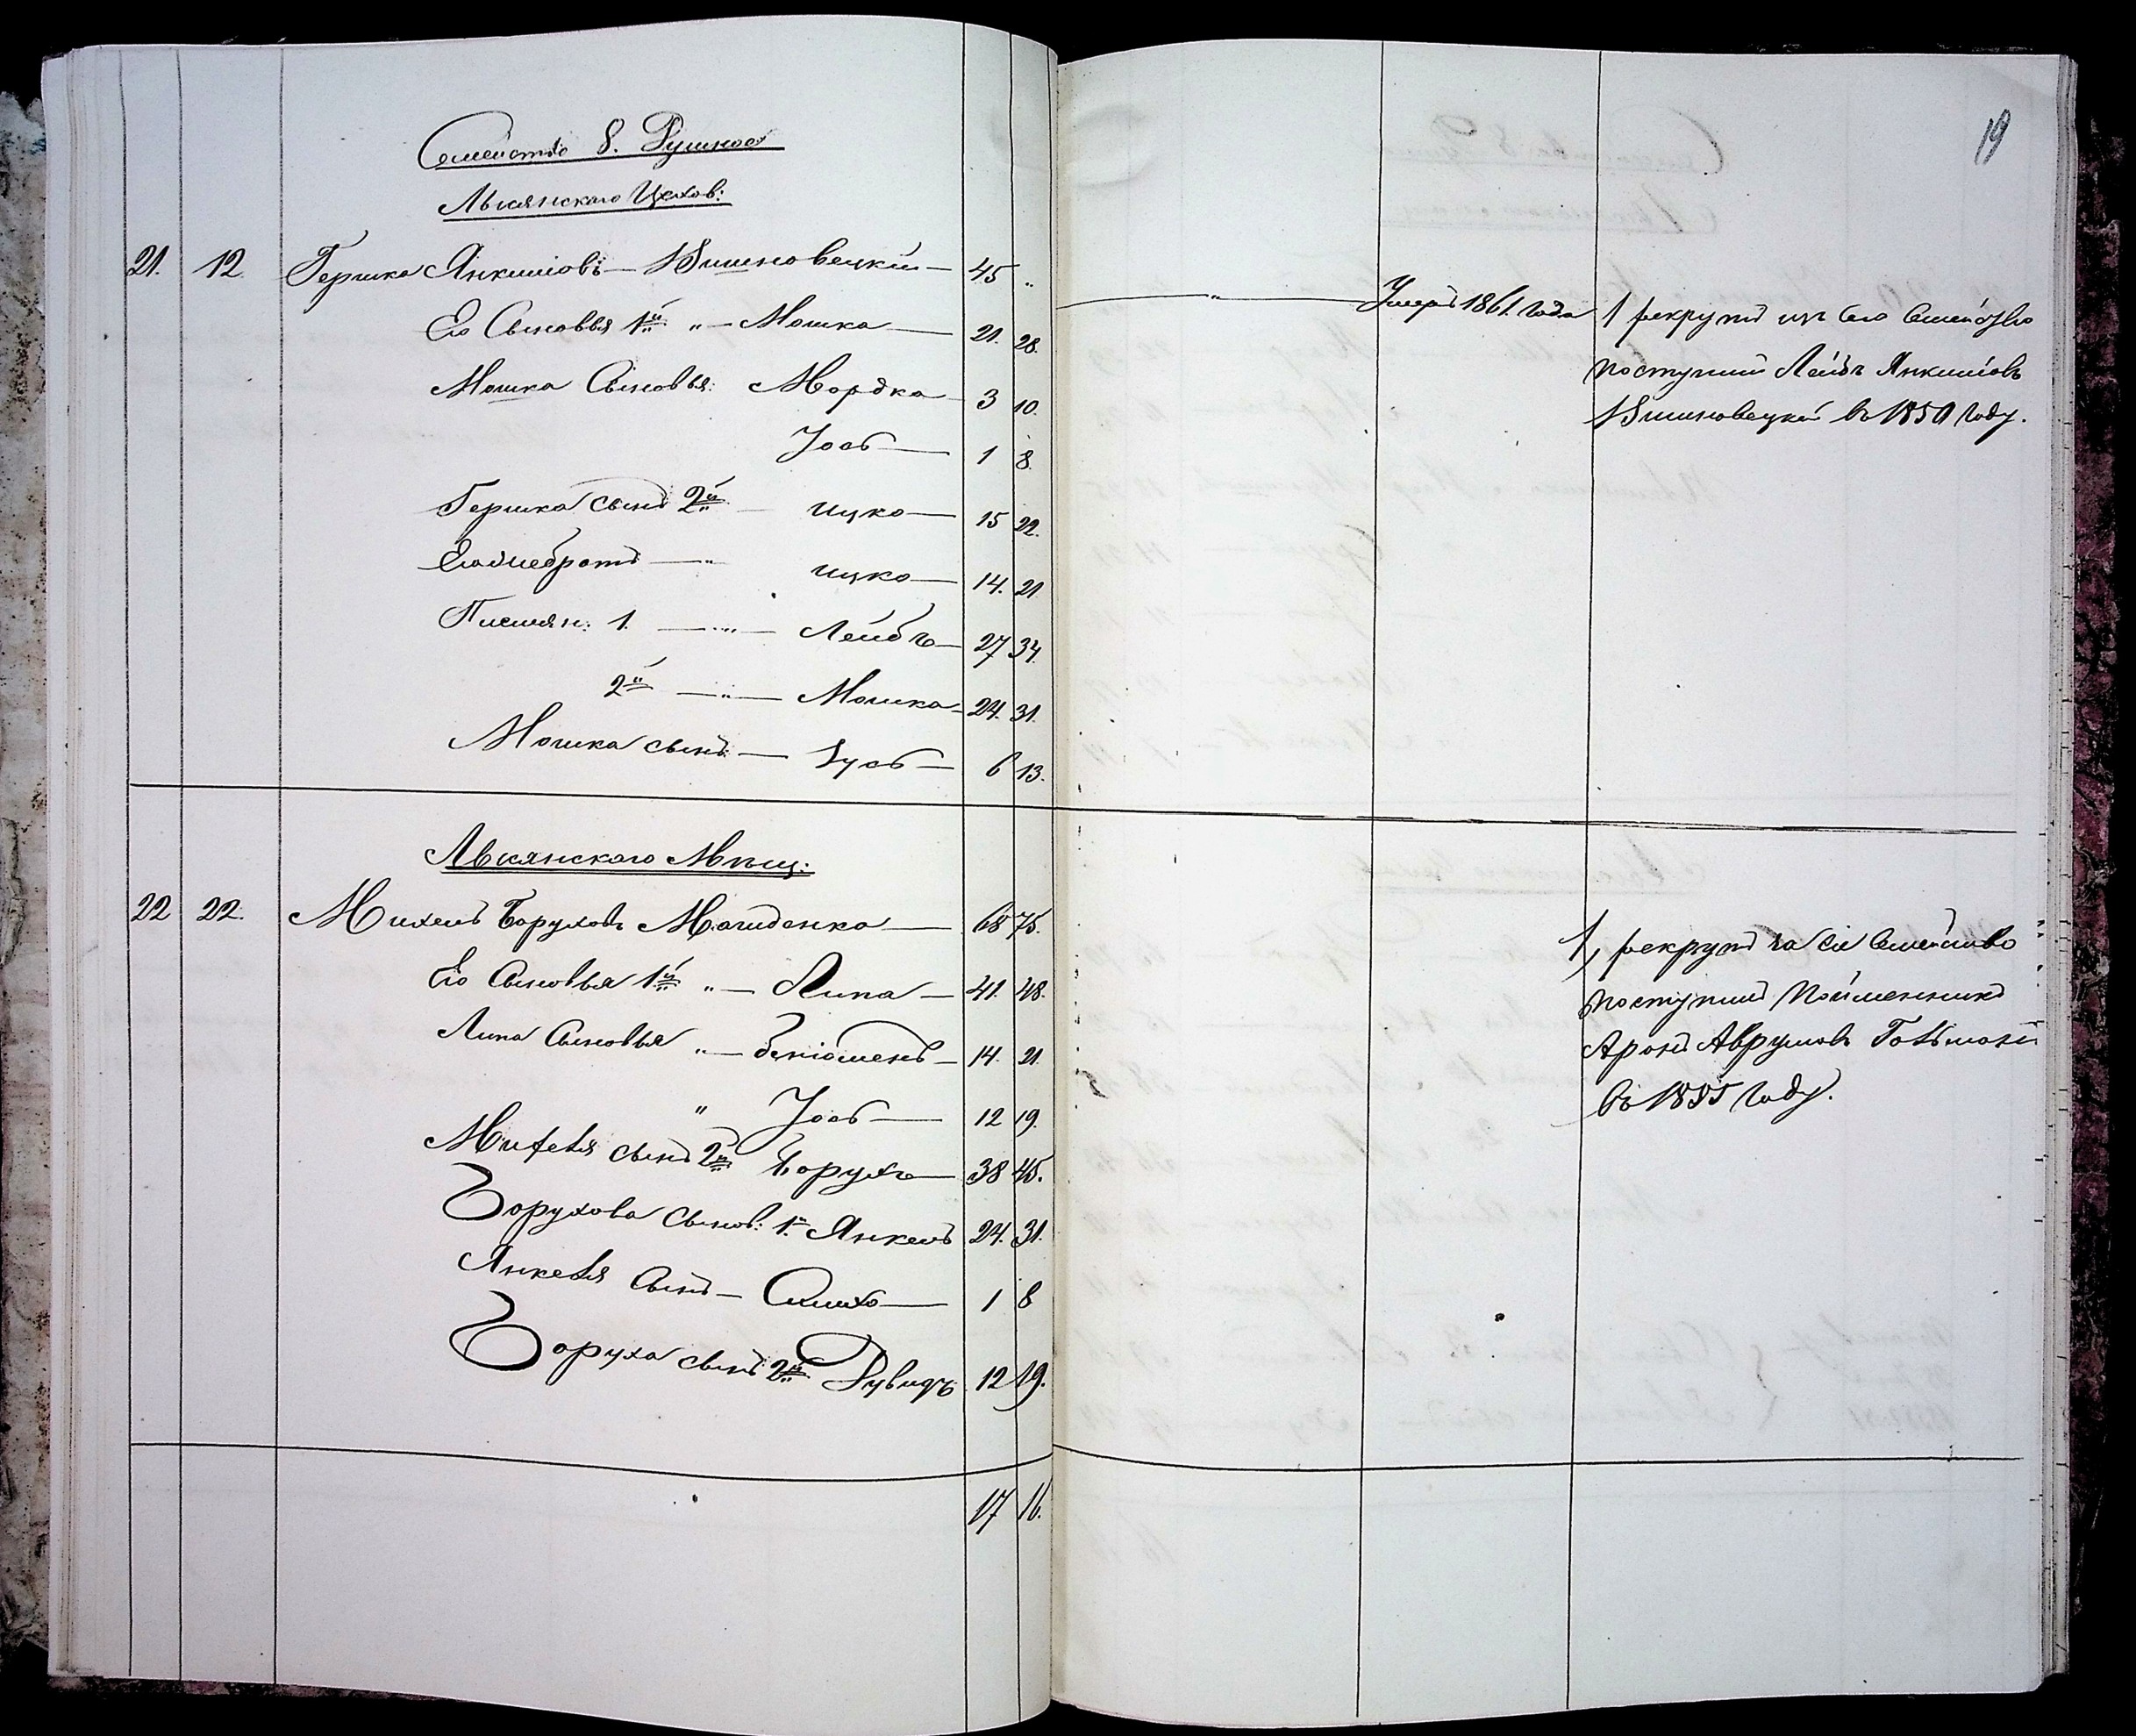 19
Семейство 8. Душное
Лысянского Цехов:
21. 12. Гершка Янкиліовъ — Вишновецкій — 45 "
Умеръ 1861. года
1 рекрутъ изъ сего Семейство
Его Сыновья 1й " — Мошка — 21. 28.
поступилъ Лейбъ Янкиліовъ
Мошка Сыновья: Мордка 3 10.
Вишновецкій въ 1850 году.
Іосъ — 1 8.
Гершка сынъ 2й — Ицко — 15 22.
Ицко — 14. 21
Племян: 1. — " — Лейбъ — 27 34.
2й — " — Мошка — 24. 31.
Мошка сынъ — — 6 13.
Лысянского Мѣщ:
22 22. Михель Боруховъ Магиденко — 68 75.
1, рекрутъ за сіе Семейство
Его Сыновья 1й " — Липа — 41. 48.
поступилъ Поименникъ
Липа Сыновья " — Беніоменъ — 14. 21.
Аронъ Аврумовъ
" Іосъ — 12 19.
въ 1855 году.
Михеля сынъ 2й Борухъ — 38 45.
Борухова Сынов: 1й Янкель 24. 31.
Янкеля Сынъ — Симхо — 1 8
Боруха сынъ 2й 12 19.
17 16.